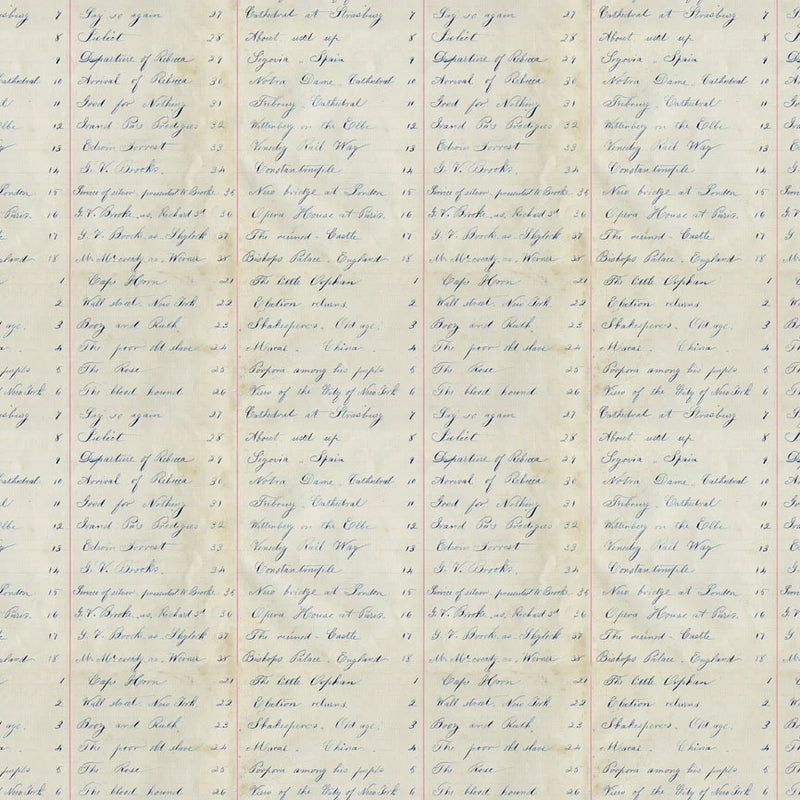 sburg 7 Say so again 27 Cathedral at Strasburg 7 Say so again 27 Cathedral at Strasburg 7
8 Juliet 28 About used up 8 Juliet 28 About used up 8
9 Departure of Rebecca 29 Segovia - Spain 9 Departure of Rebecca 29 Segovia - Spain 9
Cathedral 10 Arrival of Rebecca 30 Notra Dame. Cathedral 10 Arrival of Rebecca 30 Notra Dame. Cathedral 10
11 Good for Nothing 31 Fribourg. Cathedral 11 Good for Nothing 31 Fribourg. Cathedral 11
Elbe 12 Grand Pa's Prodigies 32 Wittenberg on the Elbe 12 Grand Pa's Prodigies 32 Wittenberg on the Elbe 12
13 Edwin Forrest 33 Venedig Rail Way 13 Edwin Forrest 33 Venedig Rail Way 13
14 G. V. Brooks. 34 Constantinople 14 G. V. Brooks. 34 Constantinople 14
London 15 Service of silver. presented to Brooke 35 New bridge at London 15 Service of silver. presented to Brooke 35 New bridge at London 15
Paris. 16 G. V. Brooke. as. Richard 3d 36 Opera House at Paris. 16 G. V. Brooke. as. Richard 3d 36 Opera House at Paris. 16
17 G. V. Brook. as. Shylock 37 The ruined - Castle 17 G. V. Brook. as. Shylock 37 The ruined - Castle 17
gland 18 Mr. as. Werner 38 Bishops Palace. England 18 Mr. as. Werner 38 Bishops Palace. England 18
1 Cape Horn 21 The little Orphan 1 Cape Horn 21 The little Orphan 1
2 Wall street. New York. 22 Election returns 2 Wall street. New York. 22 Election returns 2
age. 3 Booz and Ruth. 23 Shakespere's. Old age. 3 Booz and Ruth. 23 Shakespere's. Old age. 3
4 The poor old slave 24 Macao. China. 4 The poor old slave 24 Macao. China. 4
pupils 5 The Rose 25 Porpora among his pupils 5 The Rose 25 Porpora among his pupils 5
New York 6 The blood hound 26 View of the City of New York 6 The blood hound 26 View of the City of New York 6
sburg 7 Say so again 27 Cathedral at Strasburg 7 Say so again 27 Cathedral at Strasburg 7
8 Juliet 28 About used up 8 Juliet 28 About used up 8
9 Departure of Rebecca 29 Segovia - Spain 9 Departure of Rebecca 29 Segovia - Spain 9
Cathedral 10 Arrival of Rebecca 30 Notra Dame. Cathedral 10 Arrival of Rebecca 30 Notra Dame. Cathedral 10
11 Good for Nothing 31 Fribourg. Cathedral 11 Good for Nothing 31 Fribourg. Cathedral 11
Elbe 12 Grand Pa's Prodigies 32 Wittenberg on the Elbe 12 Grand Pa's Prodigies 32 Wittenberg on the Elbe 12
13 Edwin Forrest 33 Venedig Rail Way 13 Edwin Forrest 33 Venedig Rail Way 13
14 G. V. Brooks. 34 Constantinople 14 G. V. Brooks. 34 Constantinople 14
London 15 Service of silver. presented to Brooke 35 New bridge at London 15 Service of silver. presented to Brooke 35 New bridge at London 15
Paris. 16 G. V. Brooke. as. Richard 3d 36 Opera House at Paris. 16 G. V. Brooke. as. Richard 3d 36 Opera House at Paris. 16
17 G. V. Brook. as. Shylock 37 The ruined - Castle 17 G. V. Brook. as. Shylock 37 The ruined - Castle 17
gland 18 Mr. as. Werner 38 Bishops Palace. England 18 Mr. as. Werner 38 Bishops Palace. England 18
1 Cape Horn 21 The little Orphan 1 Cape Horn 21 The little Orphan 1
2 Wall street. New York. 22 Election returns 2 Wall street. New York. 22 Election returns 2
age. 3 Booz and Ruth. 23 Shakespere's. Old age. 3 Booz and Ruth. 23 Shakespere's. Old age. 3
4 The poor old slave 24 Macao. China. 4 The poor old slave 24 Macao. China. 4
pupils 5 The Rose 25 Porpora among his pupils 5 The Rose 25 Porpora among his pupils 5
New York 6 The blood hound 26 View of the City of New York 6 The blood hound 26 View of the City of New York 6